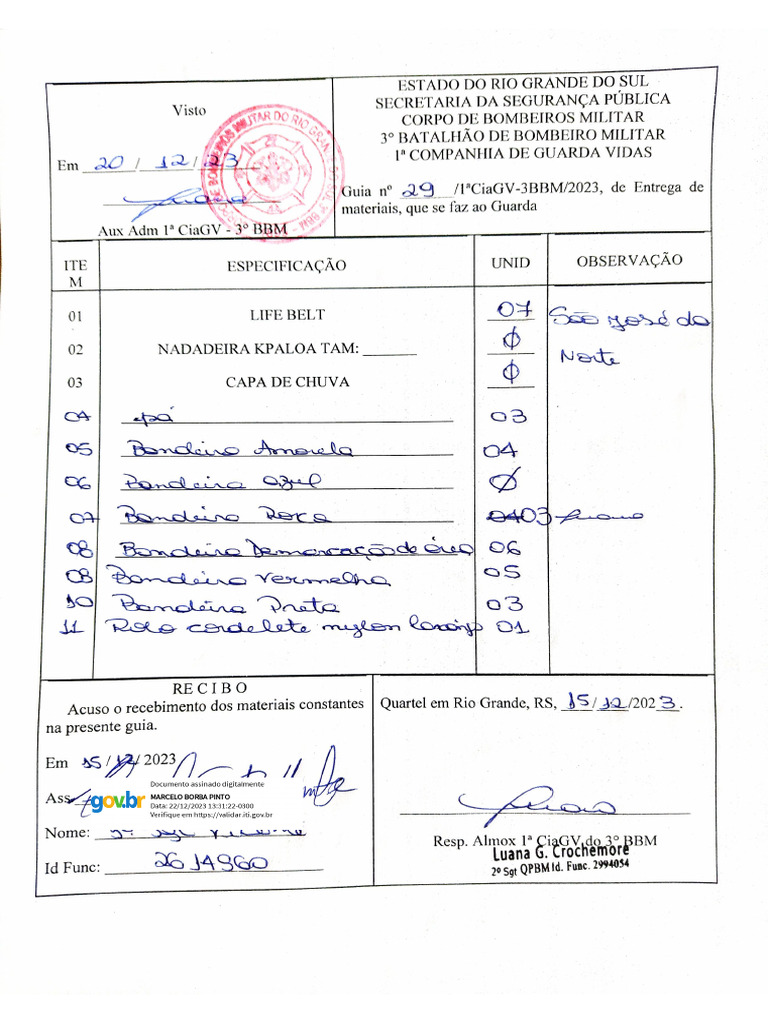 Visto
Em 20 / 12 / 23
Aux Adm 1ª CiaGV - 3º BBM
ESTADO DO RIO GRANDE DO SUL
SECRETARIA DA SEGURANÇA PÚBLICA
CORPO DE BOMBEIROS MILITAR
3º BATALHÃO DE BOMBEIRO MILITAR
1ª COMPANHIA DE GUARDA VIDAS
Guia nº 29 /1ªCiaGV-3BBM/2023, de Entrega de
materiais, que se faz ao Guarda
ITE
M
ESPECIFICAÇÃO
UNID
OBSERVAÇÃO
01 LIFE BELT 07 São José do
02 NADADEIRA KPALOA TAM: ______ Ø Norte
03 CAPA DE CHUVA Ø
04 pá 03
05 Bandeira Amarela 04
06 Bandeira Azul Ø
07 Bandeira Roxa 04 03
08 Bandeira Demarcação de área 06
08 Bandeira Vermelha 05
10 Bandeira Preta 03
11 Rolo cordelete nylon laranja 01
RECIBO
Acuso o recebimento dos materiais constantes
na presente guia.
Em 15 / 12 / 2023
Ass
gov.br
Documento assinado digitalmente
MARCELO BORBA PINTO
Data: 22/12/2023 13:31:22-0300
Verifique em https://validar.iti.gov.br
Nome:
Id Func: 2614960
Quartel em Rio Grande, RS, 15/ 12 /2023.
Resp. Almox 1ª CiaGV do 3º BBM
Luana G. Crochemore
2º Sgt QPBM Id. Func. 2994054